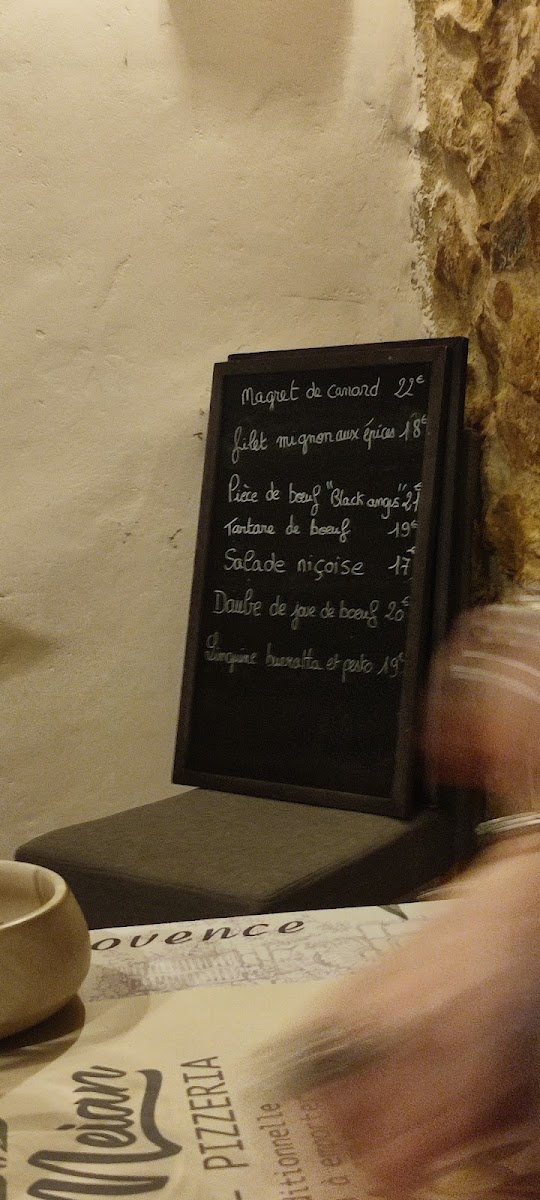 Magret de canard 22€
filet mignon aux épices 18€
Pièce de bœuf "Black angus" 27€
Tartare de bœuf 19€
Salade niçoise 17€
Daube de joue de bœuf 20€
Linguine burratta et pesto 19€
ovence
Meian
PIZZERIA
ditionnelle
à emporter